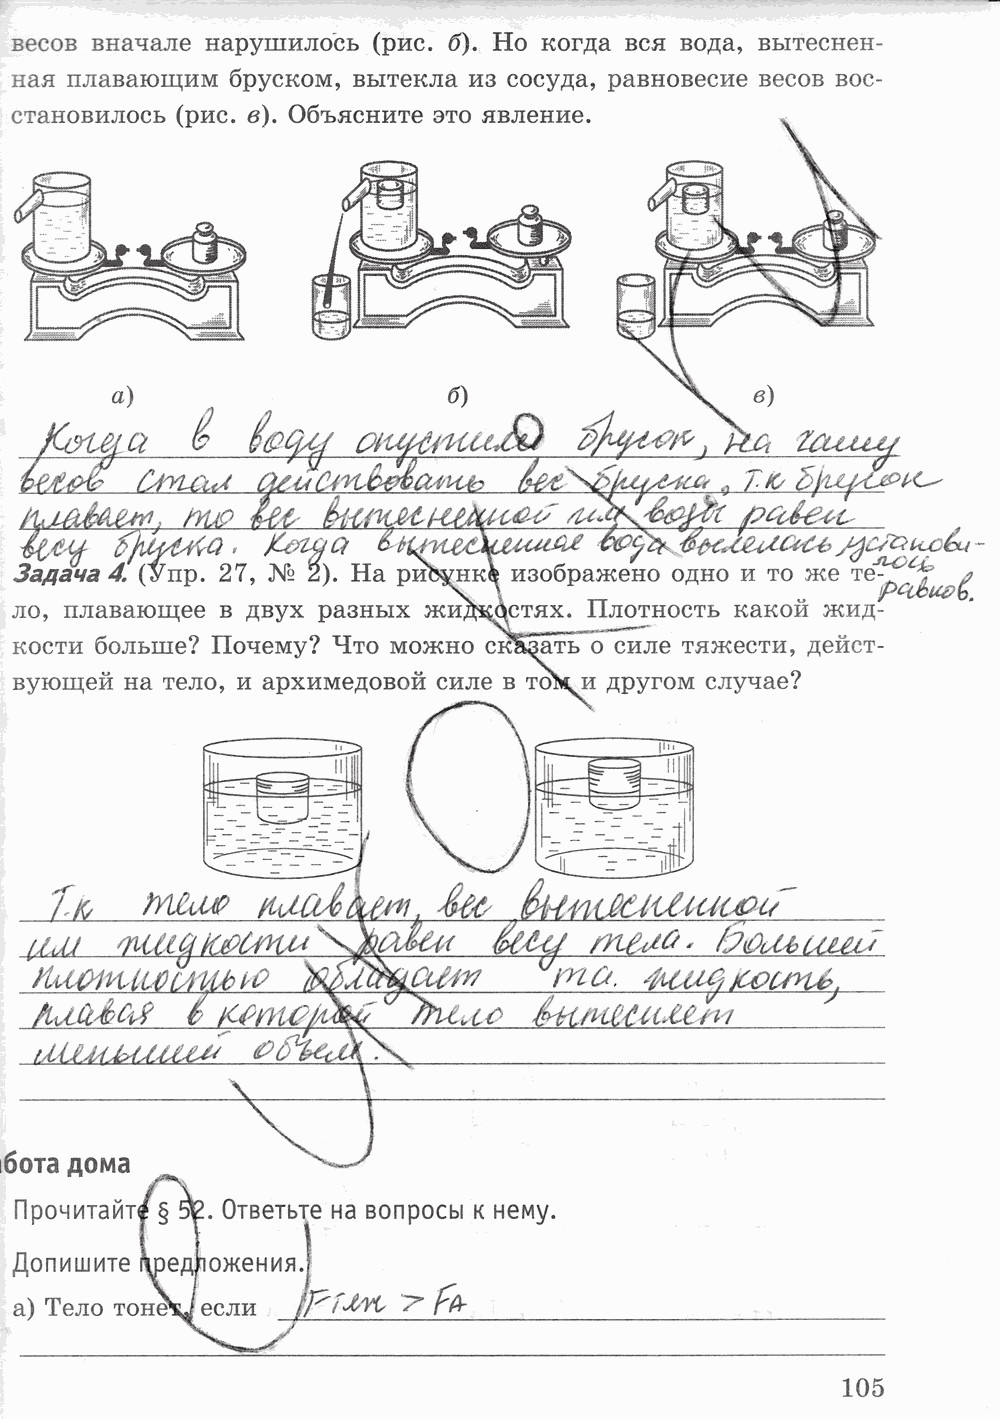 весов вначале нарушилось (рис. б). Но когда вся вода, вытеснен-
ная плавающим бруском, вытекла из сосуда, равновесие весов вос-
становилось (рис. в). Объясните это явление.
а)
б)
в)
Когда в воду опустили брусок, на чашу
весов стал действовать вес бруска. Т.к брусок
плавает, то вес вытесненной им воды равен
весу бруска. Когда вытесненная вода вылелась, установи-
лось
равнов.
Задача 4. (Упр. 27, № 2). На рисунке изображено одно и то же те-
ло, плавающее в двух разных жидкостях. Плотность какой жид-
кости больше? Почему? Что можно сказать о силе тяжести, дейст-
вующей на тело, и архимедовой силе в том и другом случае?
Т.к тело плавает, вес вытесненной
им жидкости равен весу тела. Большей
плотностью обладает та. жидкость,
плавая в которой тело вытесняет
меньший объем.
абота дома
Прочитайте § 52. Ответьте на вопросы к нему.
Допишите предложения.
а) Тело тонет, если Fтяж > FA
105